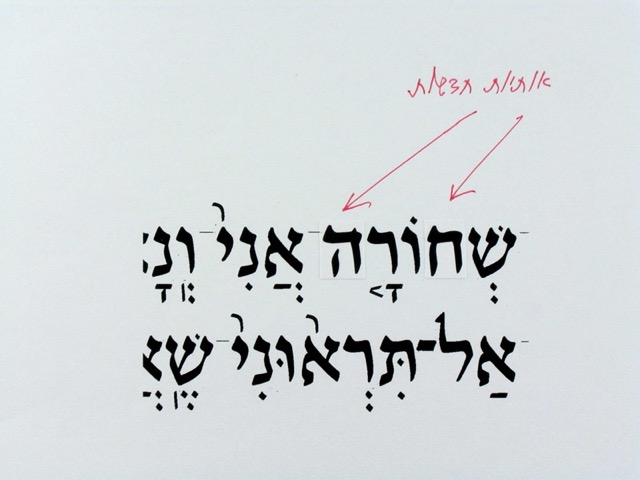 אותיות חדשות
שְׁחוֹרָ֤ה אֲנִי֙ וְֽנָ
אַל־תִּרְא֙וּנִי֙ שֶֽׁאֲ